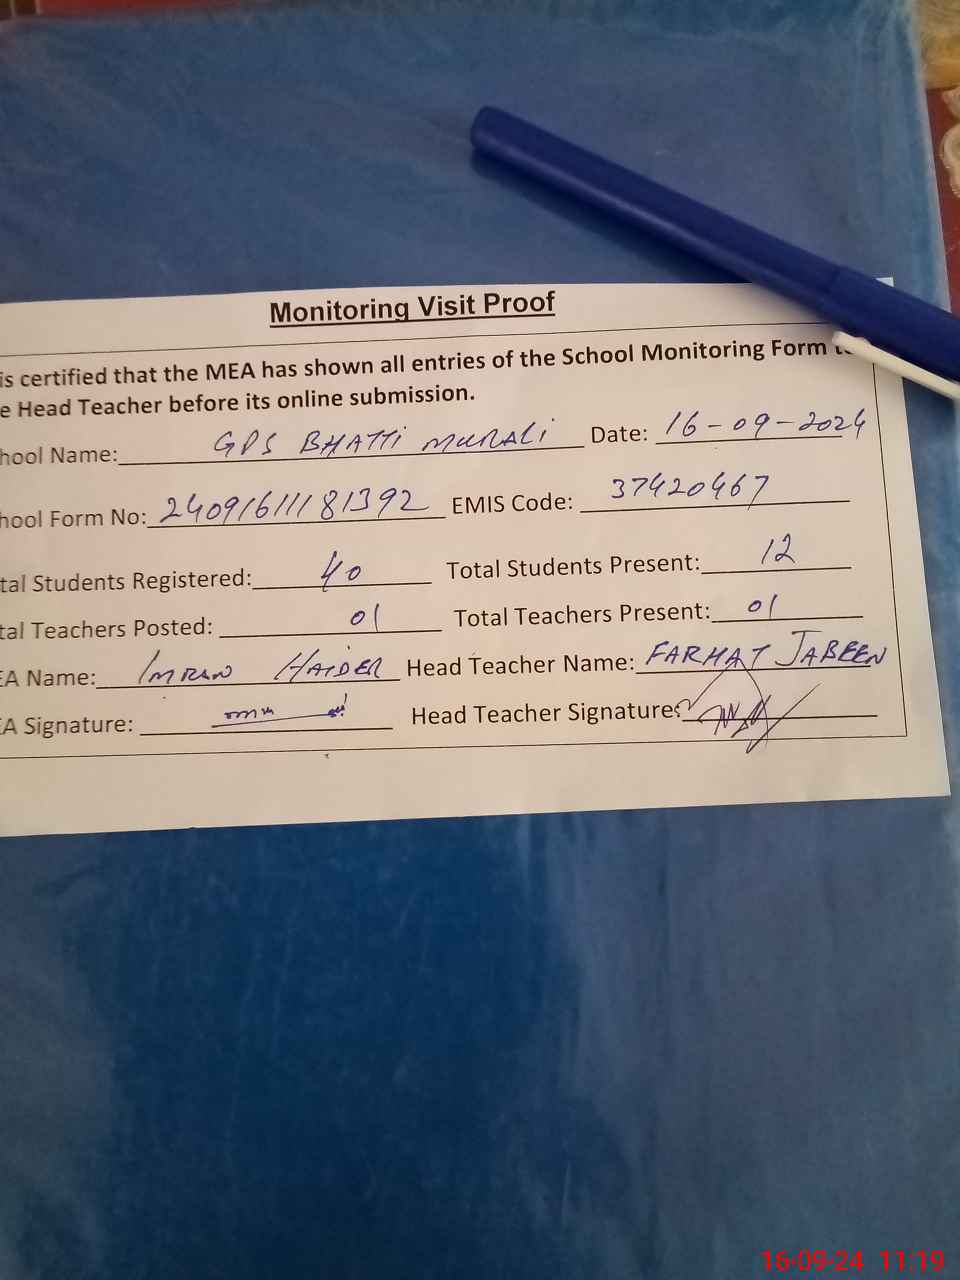 Monitoring Visit Proof
is certified that the MEA has shown all entries of the School Monitoring Form to
e Head Teacher before its online submission.
hool Name: GPS BHATTI MURALI Date: 16-09-2024
hool Form No: 24091611181392 EMIS Code: 37420467
tal Students Registered: 40 Total Students Present: 12
tal Teachers Posted: 01 Total Teachers Present: 01
EA Name: IMRAN HAIDER Head Teacher Name: FARHAT JABEEN
EA Signature: Head Teacher Signature:
16-09-24 11:19